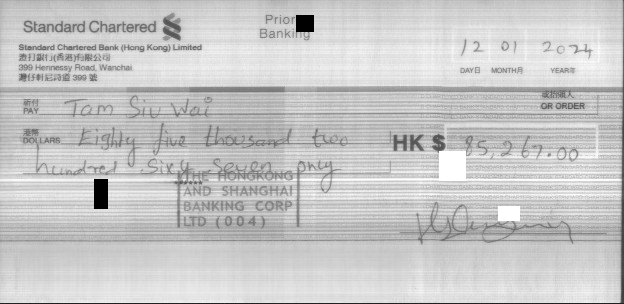 Standard Chartered
Banking
Standard Chartered Bank (Hong Kong) Limited
渣打銀行(香港)有限公司
399 Hennessy Road, Wanchai
灣仔軒尼詩道 399 號
12 01 2024
DAY日 MONTH月 YEAR年
祈付
PAY
Tam Siu Wai
或指領人
OR ORDER
港幣
DOLLARS
Eighty five thousand two
hundred sixty seven only
HK $ 85,267.00
THE HONGKONG
AND SHANGHAI
BANKING CORP
LTD (004)